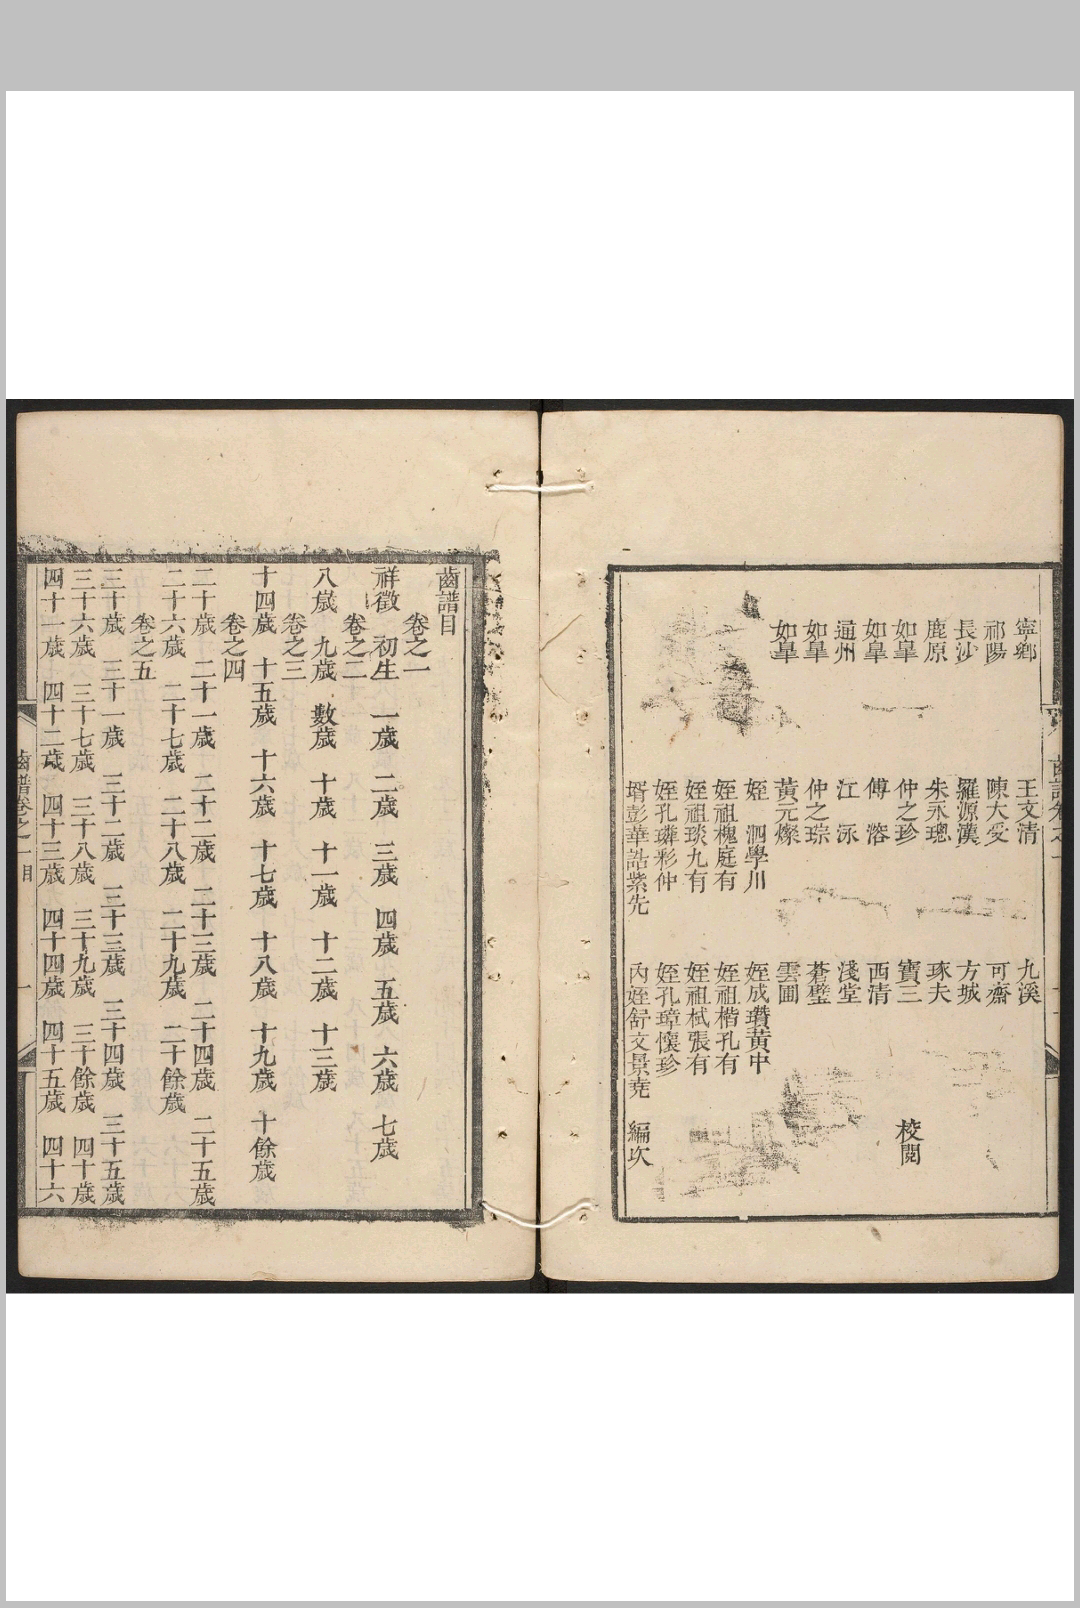 寧鄉　王文清　九溪
祁陽　陳大受　可齋
長沙　羅源漢　方城
鹿原　朱永璁　琢夫
如皐　仲之珍　寶三　校閱
如皐　傅溶　西清
通州　江泳　淺堂
如皐　仲之琮　蒼璧
如皐　黃元燦　雲圃
姪　泗學川　姪成瓚黃中
姪祖槐庭有　姪祖楷孔有
姪祖琰九有　姪祖栻張有
姪孔璘彩仲　姪孔璋懷珍
壻彭華誥紫先　內姪舒文景堯　編次
齒譜目
卷之一
祥徵　初生　一歲　二歲　三歲　四歲　五歲　六歲　七歲
卷之二
八歲　九歲　數歲　十歲　十一歲　十二歲　十三歲
卷之三
十四歲　十五歲　十六歲　十七歲　十八歲　十九歲　十餘歲
卷之四
二十歲　二十一歲　二十二歲　二十三歲　二十四歲　二十五歲
二十六歲　二十七歲　二十八歲　二十九歲　二十餘歲
卷之五
三十歲　三十一歲　三十二歲　三十三歲　三十四歲　三十五歲
三十六歲　三十七歲　三十八歲　三十九歲　三十餘歲　四十歲
四十一歲　四十二歲　四十三歲　四十四歲　四十五歲　四十六
齒譜卷之一目　一